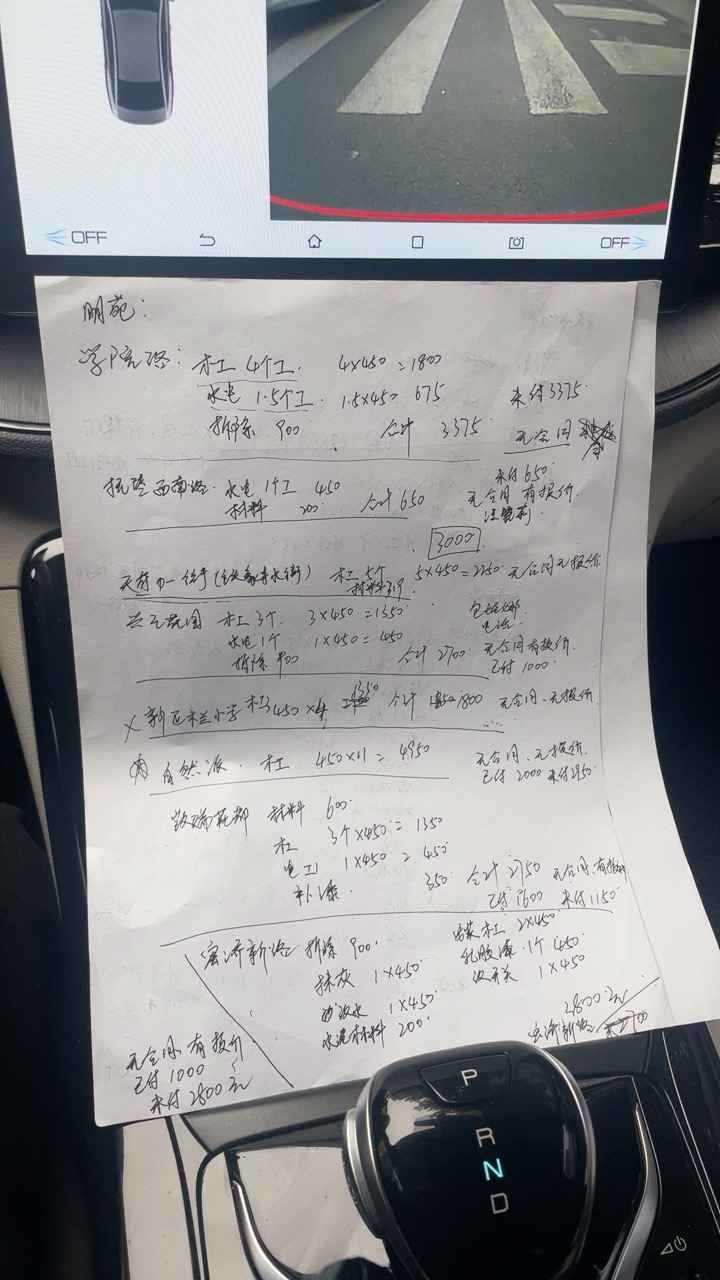 OFF
OFF
明苑:
学院路: 木工 4个工 4×450=1800
水电 1.5个工 1.5×450 675 未付3375
拆除 900 合计 3375 无合同
西南路 水电 1个工 450 未付 650
材料 200 合计 650 无合同 有报价
3000
木工 5个 5×450=2250 无合同无报价
花园 木工 3个 3×450=1350
水电 1个 1×450=450 无合同有报价
拆除 900 合计 2700 已付 1000
× 新区木兰小学 木工 450×4 1350 合计 1800 无合同、无报价
自然派 木工 450×11=4950 无合同、无报价
已付 2000 未付2950
花都 材料 600
木工 3个×450=1350
电工 1×450=450
补漆 350 合计 2750 无合同、有报价
已付 1600 未付1150
宏济新路 拆除 900 安装木工 2×450
抹灰 1×450 乳胶漆 1个 450
防水 1×450 开关 1×450
水泥材料 200
2800元
宏济新路
无合同、有报价
已付 1000
未付 2800元
P
R
N
D